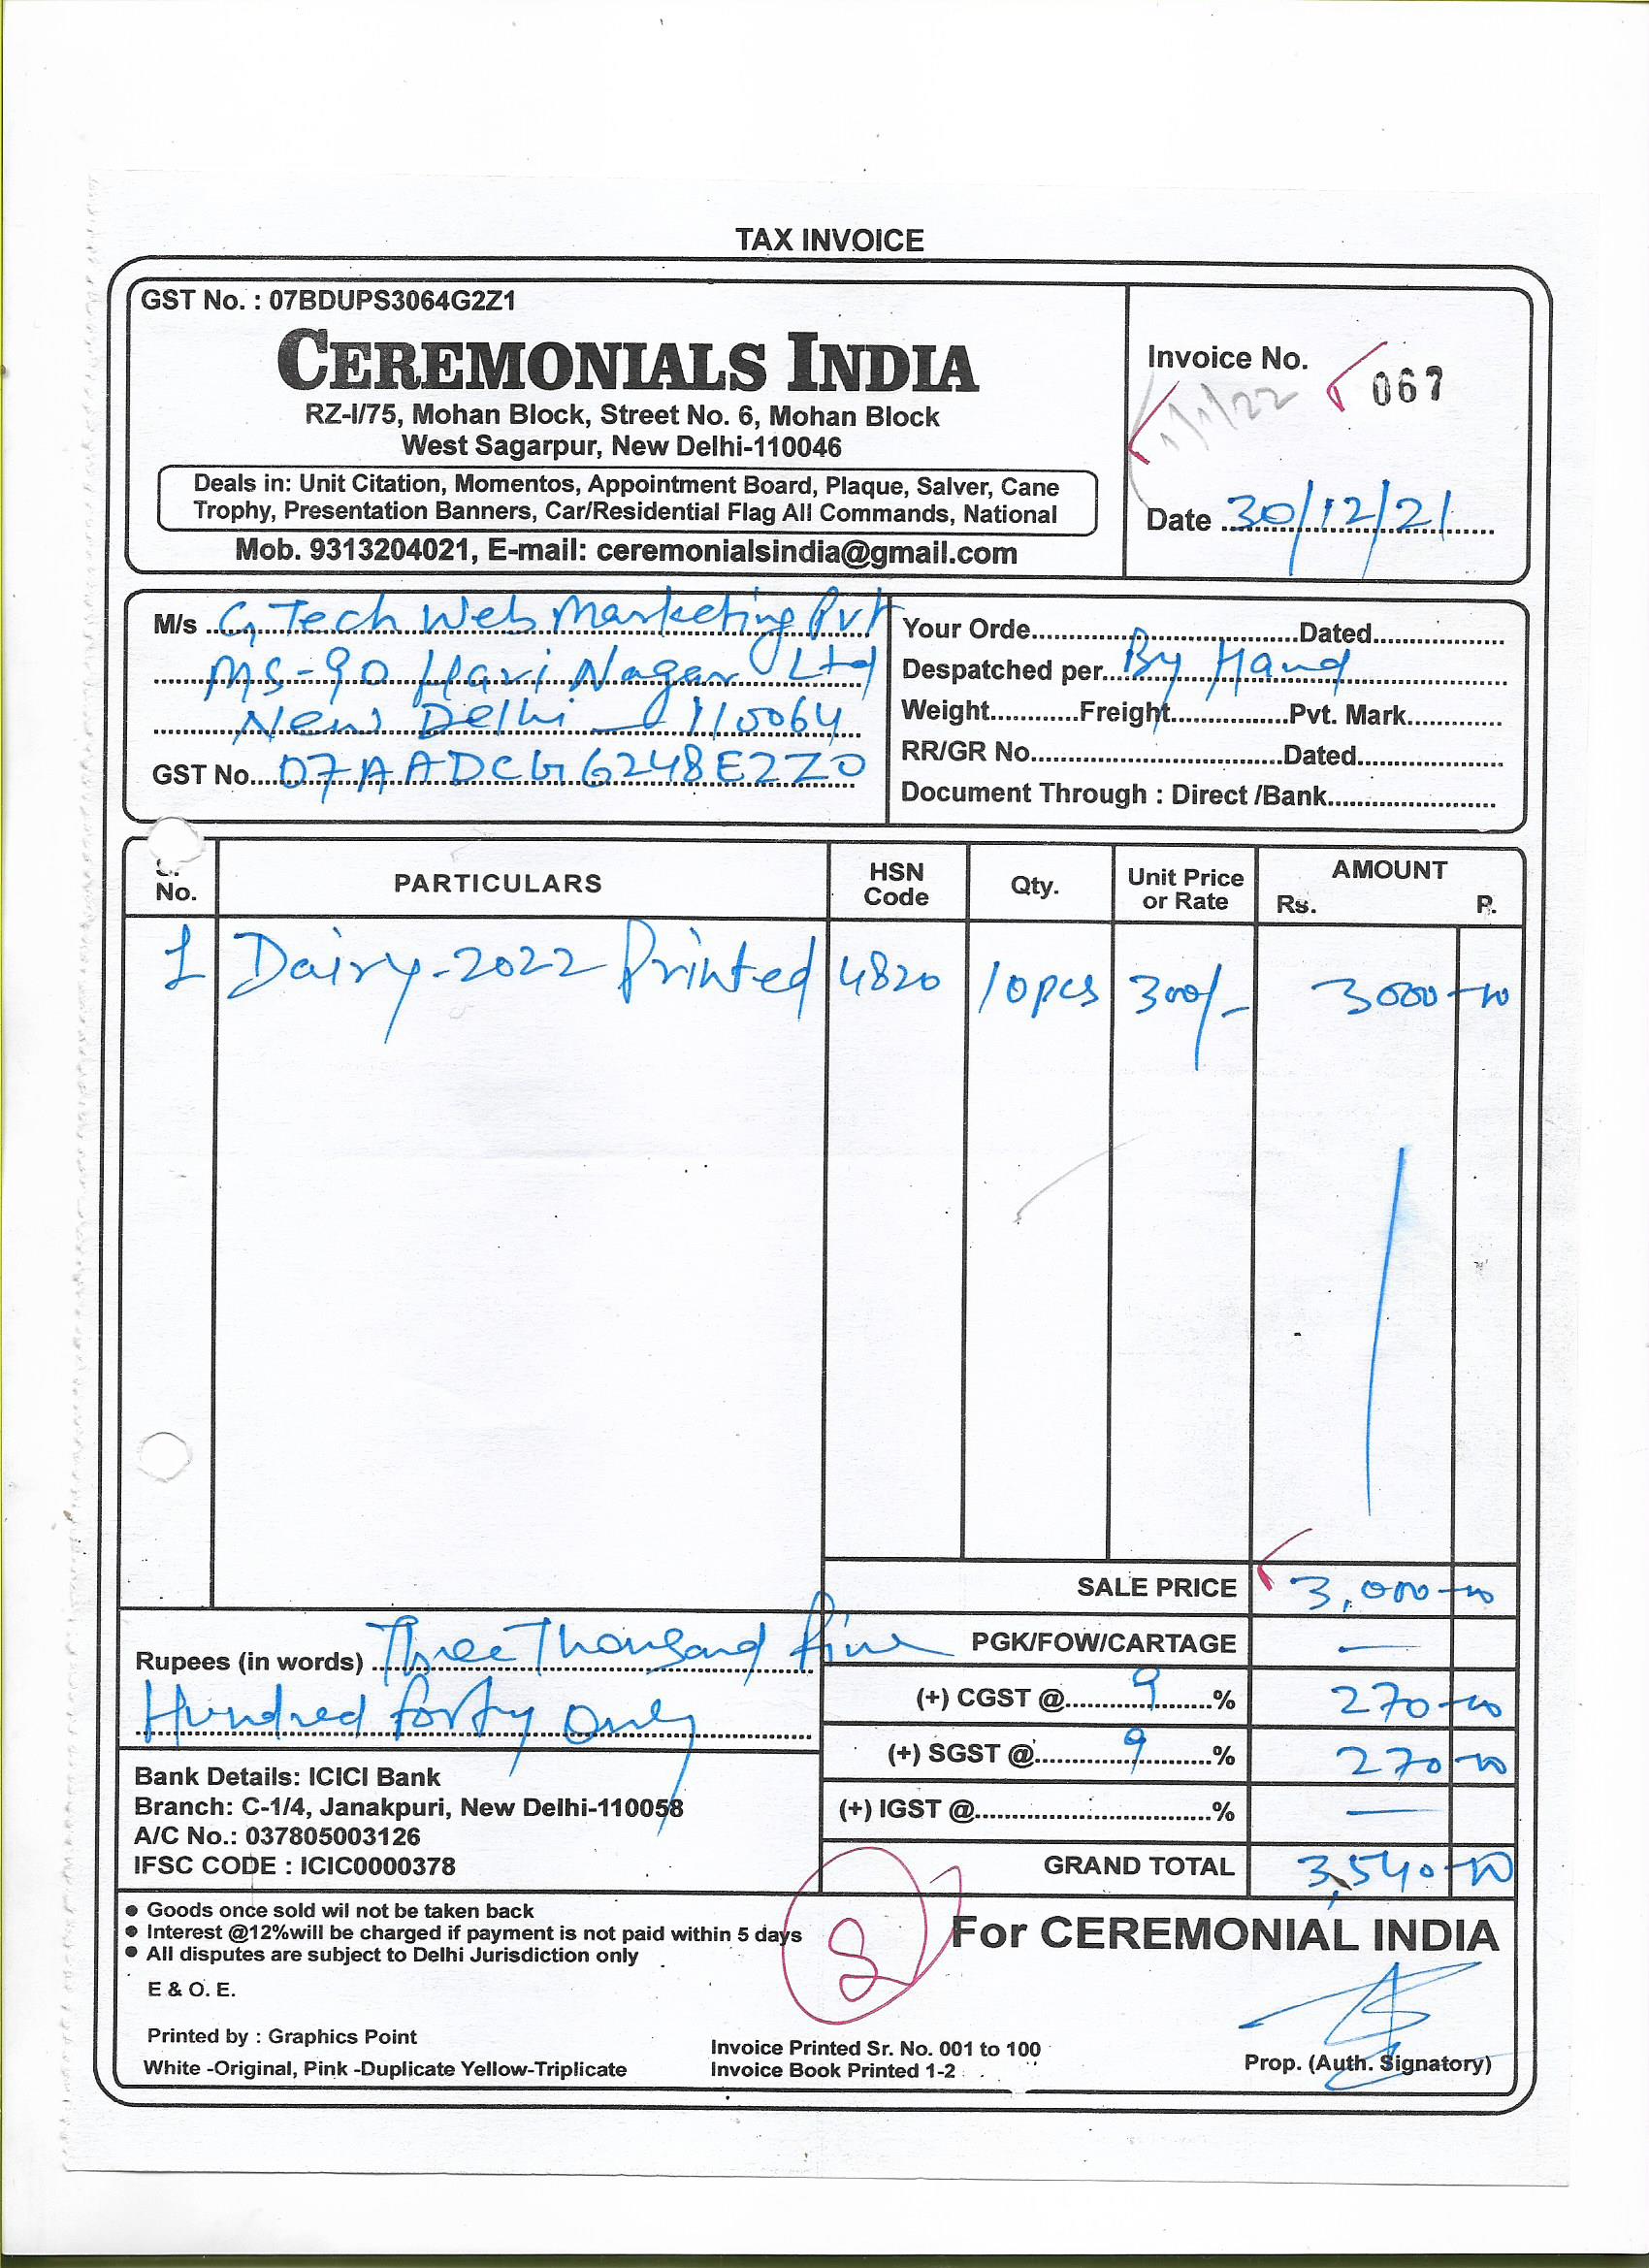 TAX INVOICE
GST No. : 07BDUPS3064G2Z1
CEREMONIALS INDIA
RZ-I/75, Mohan Block, Street No. 6, Mohan Block
West Sagarpur, New Delhi-110046
Deals in: Unit Citation, Momentos, Appointment Board, Plaque, Salver, Cane
Trophy, Presentation Banners, Car/Residential Flag All Commands, National
Mob. 9313204021, E-mail: ceremonialsindia@gmail.com
Invoice No. 067
1/1/22
Date 30/12/21
M/s G Tech Web Marketing Pvt
MS-90 Hari Nagar Ltd
New Delhi - 110064
GST No. 07AADCG6248E2ZO
Your Orde Dated
Despatched per By Hand
Weight Freight Pvt. Mark
RR/GR No Dated
Document Through : Direct /Bank
No. PARTICULARS HSN Code Qty. Unit Price or Rate AMOUNT Rs. P.
1 Dairy-2022 Printed 4820 10pcs 300/- 3000-00
SALE PRICE 3,000-00
Rupees (in words) Three Thousand five
Hundred forty only
PGK/FOW/CARTAGE —
(+) CGST @ 9 % 270-00
(+) SGST @ 9 % 270-00
(+) IGST @ % —
GRAND TOTAL 3,540-00
Bank Details: ICICI Bank
Branch: C-1/4, Janakpuri, New Delhi-110058
A/C No.: 037805003126
IFSC CODE : ICIC0000378
● Goods once sold wil not be taken back
● Interest @12%will be charged if payment is not paid within 5 days
● All disputes are subject to Delhi Jurisdiction only
E & O. E.
8
For CEREMONIAL INDIA
Printed by : Graphics Point
White -Original, Pink -Duplicate Yellow-Triplicate
Invoice Printed Sr. No. 001 to 100
Invoice Book Printed 1-2
Prop. (Auth. Signatory)